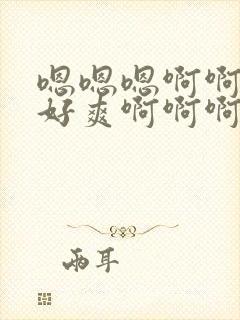 嗯嗯嗯啊啊
好爽啊啊啊
两耳